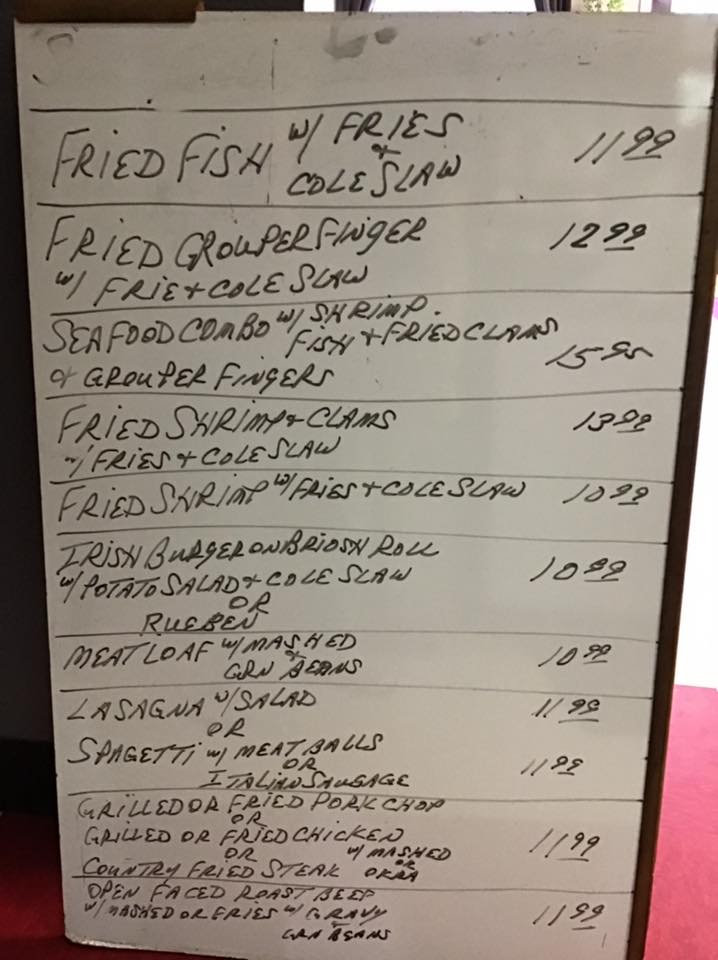 FRIED FISH W/ FRIES & COLE SLAW 11.99
FRIED GROUPER FINGER 12.99
W/ FRIE + COLE SLAW
SEAFOOD COMBO W/ SHRIMP.
FISH + FRIED CLAMS 15.95
& GROUPER FINGERS
FRIED SHRIMP & CLAMS 13.99
W/ FRIES + COLE SLAW
FRIED SHRIMP W/ FRIES + COLE SLAW 10.99
IRISH BURGER ON BRIOSH ROLL
W/ POTATO SALAD & COLE SLAW 10.99
OR
RUEBEN
MEATLOAF W/ MASHED
& GRN BEANS 10.99
LASAGNA W/ SALAD 11.99
OR
SPAGETTI W/ MEATBALLS
OR 11.99
ITALIAN SAUGAGE
GRILLED OR FRIED PORK CHOP
OR
GRILLED OR FRIED CHICKEN 11.99
OR W/ MASHED
COUNTRY FRIED STEAK OR OKRA
OPEN FACED ROAST BEEF
W/ MASHED OR FRIES W/ GRAVY 11.99
& GRN BEANS